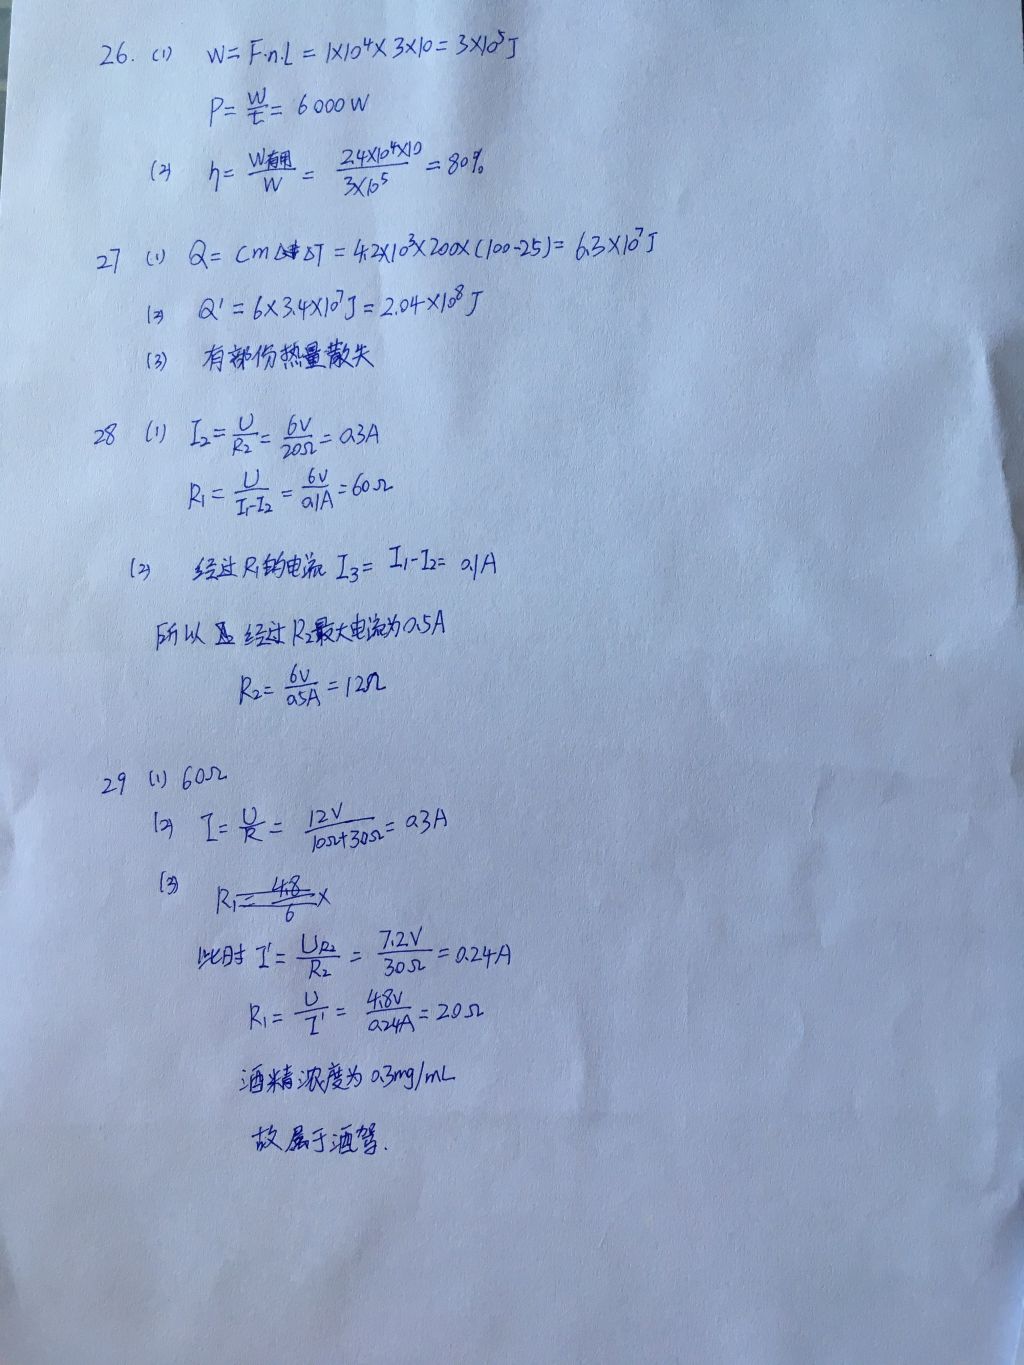 26. (1) W=F.n.L=1×10⁴×3×10=3×10⁵J
P=W/t=6000W
(2) η=W有用/W=2.4×10⁴×10/3×10⁵=80%
27 (1) Q=cmΔT=4.2×10³×200×(100-25)=6.3×10⁷J
(2) Q'=6×3.4×10⁷J=2.04×10⁸J
(3) 有部份热量散失
28 (1) I₂=U/R₂=6V/20Ω=0.3A
R₁=U/I₁-I₂=6V/0.1A=60Ω
(2) 经过R₁的电流 I₃=I₁-I₂=0.1A
所以 经过R₂最大电流为0.5A
R₂=6V/0.5A=12Ω
29 (1) 60Ω
(2) I=U/R=12V/10Ω+30Ω=0.3A
(3) R₁=4.8/6×
此时 I'=U_R₂/R₂=7.2V/30Ω=0.24A
R₁=U/I'=4.8V/0.24A=20Ω
酒精浓度为0.3mg/mL
故属于酒驾.